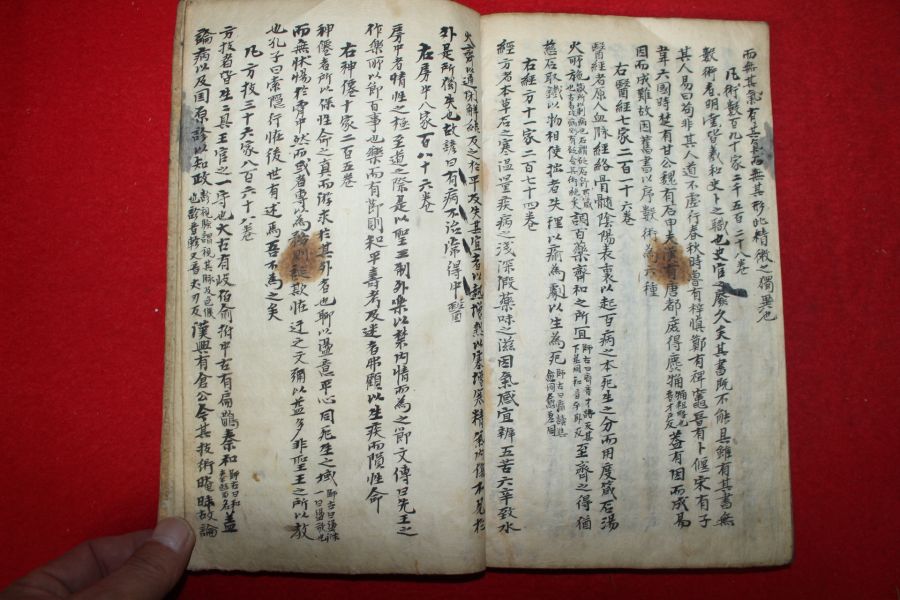 而無其氣有其氣而無其形此精微之獨異也
凡術數百九十家二千五百二十八卷
數術者明堂羲和史卜之職也史官之廢久矣其書既不能具雖有其書無
其人易曰苟非其人道不虛行春秋時魯有梓慎鄭有裨竈晉有卜偃宋有子
韋六國時楚有甘公魏有石申夫漢有唐都庶得麤觕蓋有因而成易
因而成難故因舊書以序數術為六種
右醫經七家二百一十六卷
醫經者原人血脈經絡骨髓陰陽表裏以起百病之本死生之分而用度箴石湯
火所施調百藥齊和之所宜至齊之得猶
慈石取鐵以物相使拙者失理以瘉為劇以生為死
右經方十一家二百七十四卷
經方者本草石之寒溫量疾病之淺深假藥味之滋因氣感宜辨五苦六辛致水
火齊以通閉解結反之於平及失其宜者以熱增熱以寒增寒精氣內傷不見於
外是所獨失也故諺曰有病不治常得中醫
右房中八家百八十六卷
房中者情性之極至道之際是以聖王制外樂以禁內情而為之節文傳曰先王之
作樂所以節百事也樂而有節則和平壽考及迷者弗顧以生疾而隕性命
右神僊十家二百五卷
神僊者所以保性命之真而游求於其外者也聊以盪意平心同死生之域
而無怵惕於胷中然而或者專以為務則誕欺怪迂之文彌以益多非聖王之所以教
也孔子曰索隱行怪後世有述焉吾不為之矣
凡方技三十六家八百六十八卷
方技者皆生生之具王官之一守也太古有岐伯俞拊中古有扁鵲秦和蓋
論病以及國原診以知政漢興有倉公今其技術晻昧故論